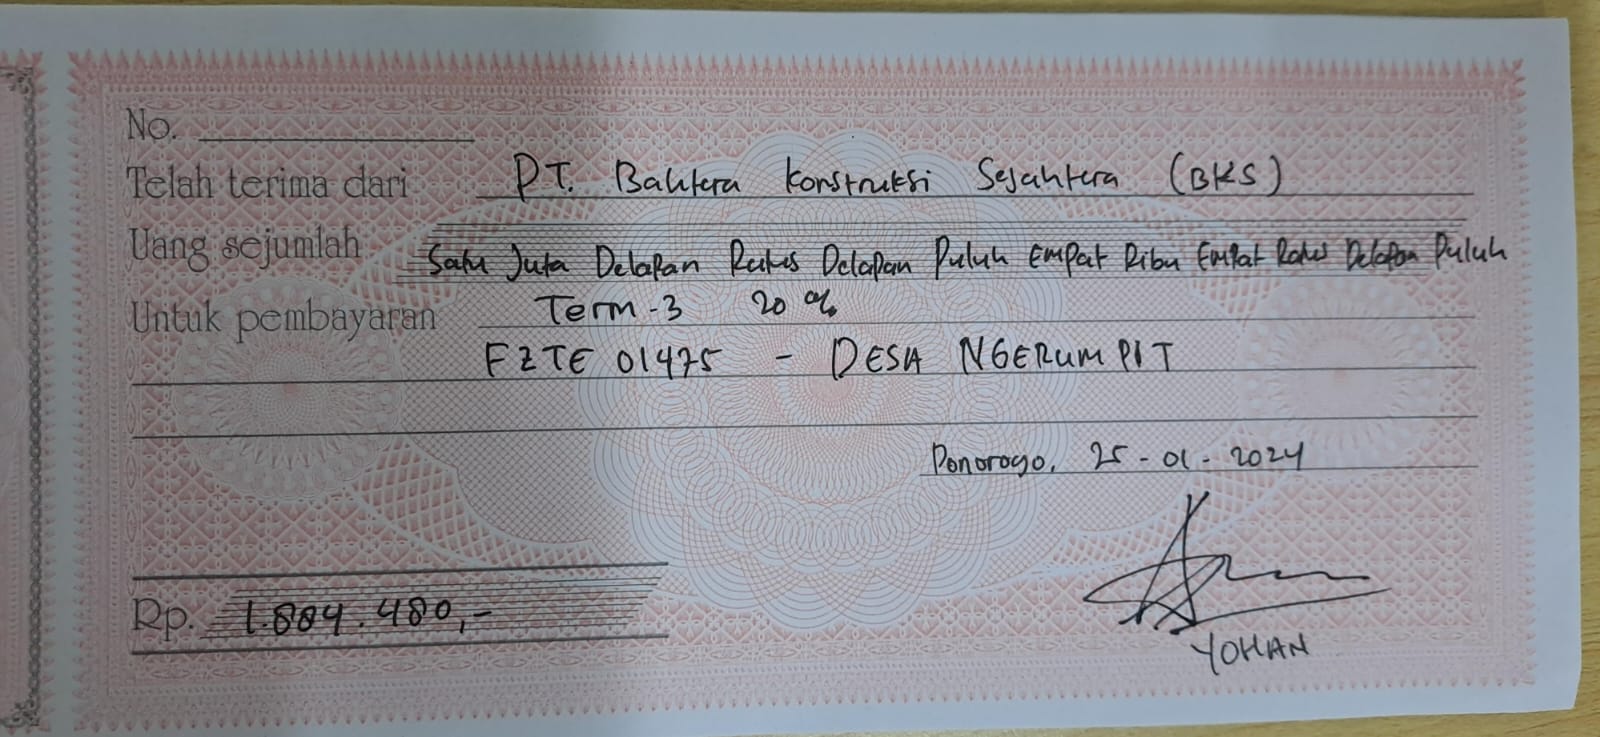 No.
Telah terima dari PT. Bahtera Konstruksi Sejahtera (BKS)
Uang sejumlah Satu Juta Delapan Ratus Delapan Puluh Empat Ribu Empat Ratus Delapan Puluh
Untuk pembayaran Term-3 20 %
FZTE 01475 - DESA NGERUMPIT
Ponorogo, 25-01-2024
Rp. 1.884.480,-
YOHAN